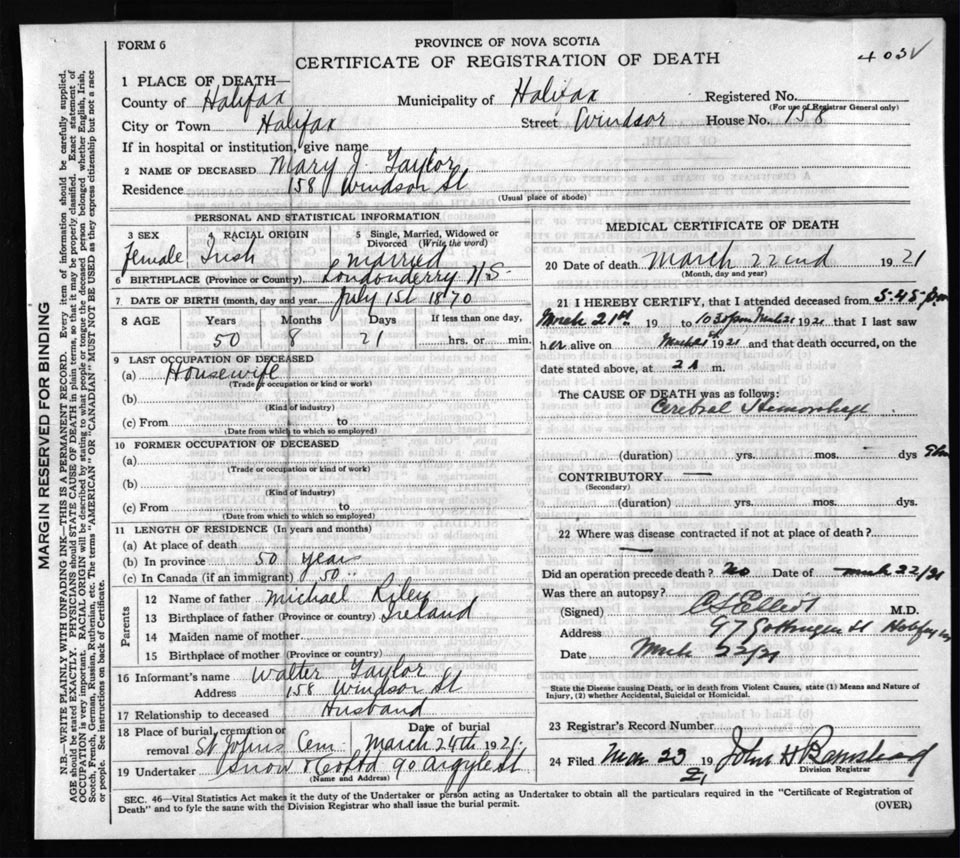 FORM 6
PROVINCE OF NOVA SCOTIA
CERTIFICATE OF REGISTRATION OF DEATH
403
1 PLACE OF DEATH—
County of Halifax Municipality of Halifax Registered No.
(For use of Registrar General only)
City or Town Halifax Street Windsor House No. 158
If in hospital or institution, give name
2 NAME OF DECEASED Mary J. Taylor
Residence 158 Windsor St
(Usual place of abode)
PERSONAL AND STATISTICAL INFORMATION
3 SEX 4 RACIAL ORIGIN 5 Single, Married, Widowed or Divorced (Write the word)
Female Irish married
6 BIRTHPLACE (Province or County) Londonderry N.S.
7 DATE OF BIRTH (month, day and year) July 1st 1870
8 AGE Years Months Days If less than one day,
50 8 21 hrs. or min.
9 LAST OCCUPATION OF DECEASED
(a) Housewife
(Trade or occupation or kind of work)
(b)
(Kind of industry)
(c) From to
(Date from which to which so employed)
10 FORMER OCCUPATION OF DECEASED
(a)
(Trade or occupation or kind of work)
(b)
(Kind of industry)
(c) From to
(Date from which to which so employed)
11 LENGTH OF RESIDENCE (In years and months)
(a) At place of death
(b) In province 50 years
(c) In Canada (if an immigrant) 50 "
Parents
12 Name of father Michael Riley
13 Birthplace of father (Province or country) Ireland
14 Maiden name of mother
15 Birthplace of mother (Province or country)
16 Informant's name Walter Taylor
Address 158 Windsor St
17 Relationship to deceased Husband
18 Place of burial, cremation or removal Date of burial
St Johns Cem March 24th 1921
19 Undertaker Snow & Co Ltd 90 Argyle St
(Name and Address)
MEDICAL CERTIFICATE OF DEATH
20 Date of death March 22nd 1921
(Month, day and year)
21 I HEREBY CERTIFY, that I attended deceased from 5.45 pm
March 21st 19 to 10 30 pm March 21 1921 that I last saw
her alive on March 21 1921 and that death occurred, on the
date stated above, at 2 A m.
The CAUSE OF DEATH was as follows:
Cerebral Hemorrhage
(duration) yrs. mos. dys
CONTRIBUTORY —
(Secondary)
(duration) yrs. mos. dys.
22 Where was disease contracted if not at place of death?
—
Did an operation precede death? no Date of March 22/21
Was there an autopsy?
(Signed) Elliot M.D.
Address 97 Gottingen St Halifax
Date March 22/21
State the Disease causing Death, or in death from Violent Causes, state (1) Means and Nature of
Injury, (2) whether Accidental, Suicidal or Homicidal.
23 Registrar's Record Number
24 Filed Mar 23 1921 John H
Division Registrar
SEC. 46—Vital Statistics Act makes it the duty of the Undertaker or person acting as Undertaker to obtain all the particulars required in the "Certificate of Registration of
Death" and to fyle the same with the Division Registrar who shall issue the burial permit.
(OVER)
MARGIN RESERVED FOR BINDING
N.B.—WRITE PLAINLY WITH UNFADING INK—THIS IS A PERMANENT RECORD. Every item of information should be carefully supplied.
AGE should be stated EXACTLY. PHYSICIANS should STATE CAUSE OF DEATH in plain terms, so that it may be properly classified. Exact statement of
OCCUPATION is very important. RACIAL ORIGIN will be described by stating to what people or tongue the deceased person belonged, whether English, Irish,
Scotch, French, German, Russian, Ruthenian, etc. The terms "AMERICAN" OR "CANADIAN" MUST NOT BE USED as they express citizenship but not a race
or people. See instructions on back of Certificate.